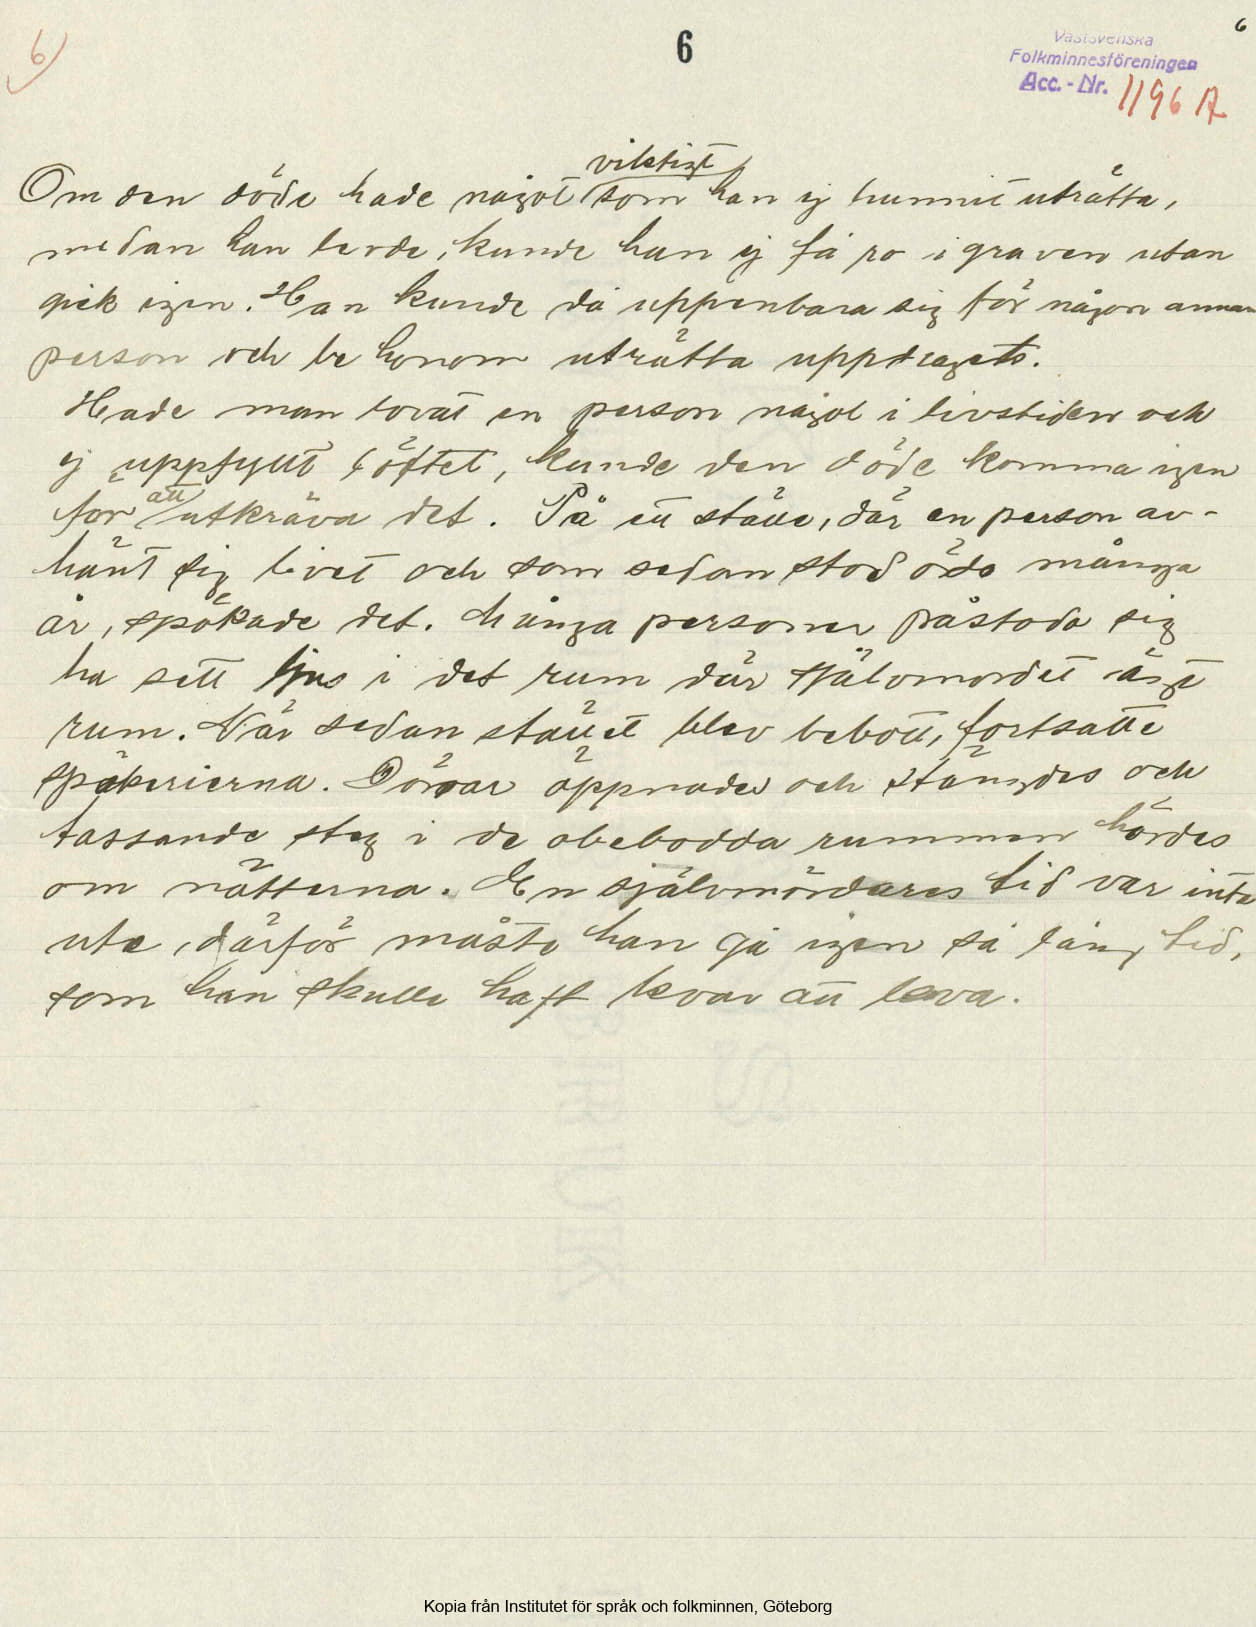 6
6
6
Västsvenska
Folkminnesföreningen
Acc. - Nr. 1196 A
Om den döde hade något viktigt som han ej hunnit uträtta,
medan han levde, kunde han ej få ro i graven utan
gick igen. Han kunde då uppenbara sig för någon annan
person och be honom uträtta uppdraget.
Hade man lovat en person något i livstiden och
ej uppfyllt löftet, kunde den döde komma igen
för att utkräva det. På ett ställe, där en person av-
hänt sig livet och som sedan stod öde många
år, spökade det. Många personer påstodo sig
ha sett ljus i det rum där självmordet ägt
rum. När sedan stället blev bebott, fortsatte
spökerierna. Dörrar öppnades och stängdes och
tassande steg i de obebodda rummen hördes
om nätterna. En självmördares tid var inte
ute, därför måste han gå igen så lång tid,
som han skulle haft kvar att leva.
Kopia från Institutet för språk och folkminnen, Göteborg